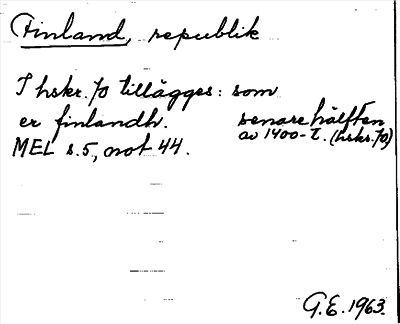 Finland, republik
I hskr. 70 tillägges: som
er finlandh. senare hälften
av 1400-t. (hskr. 70)
MEL s. 5, not 44.
G.E. 1963.